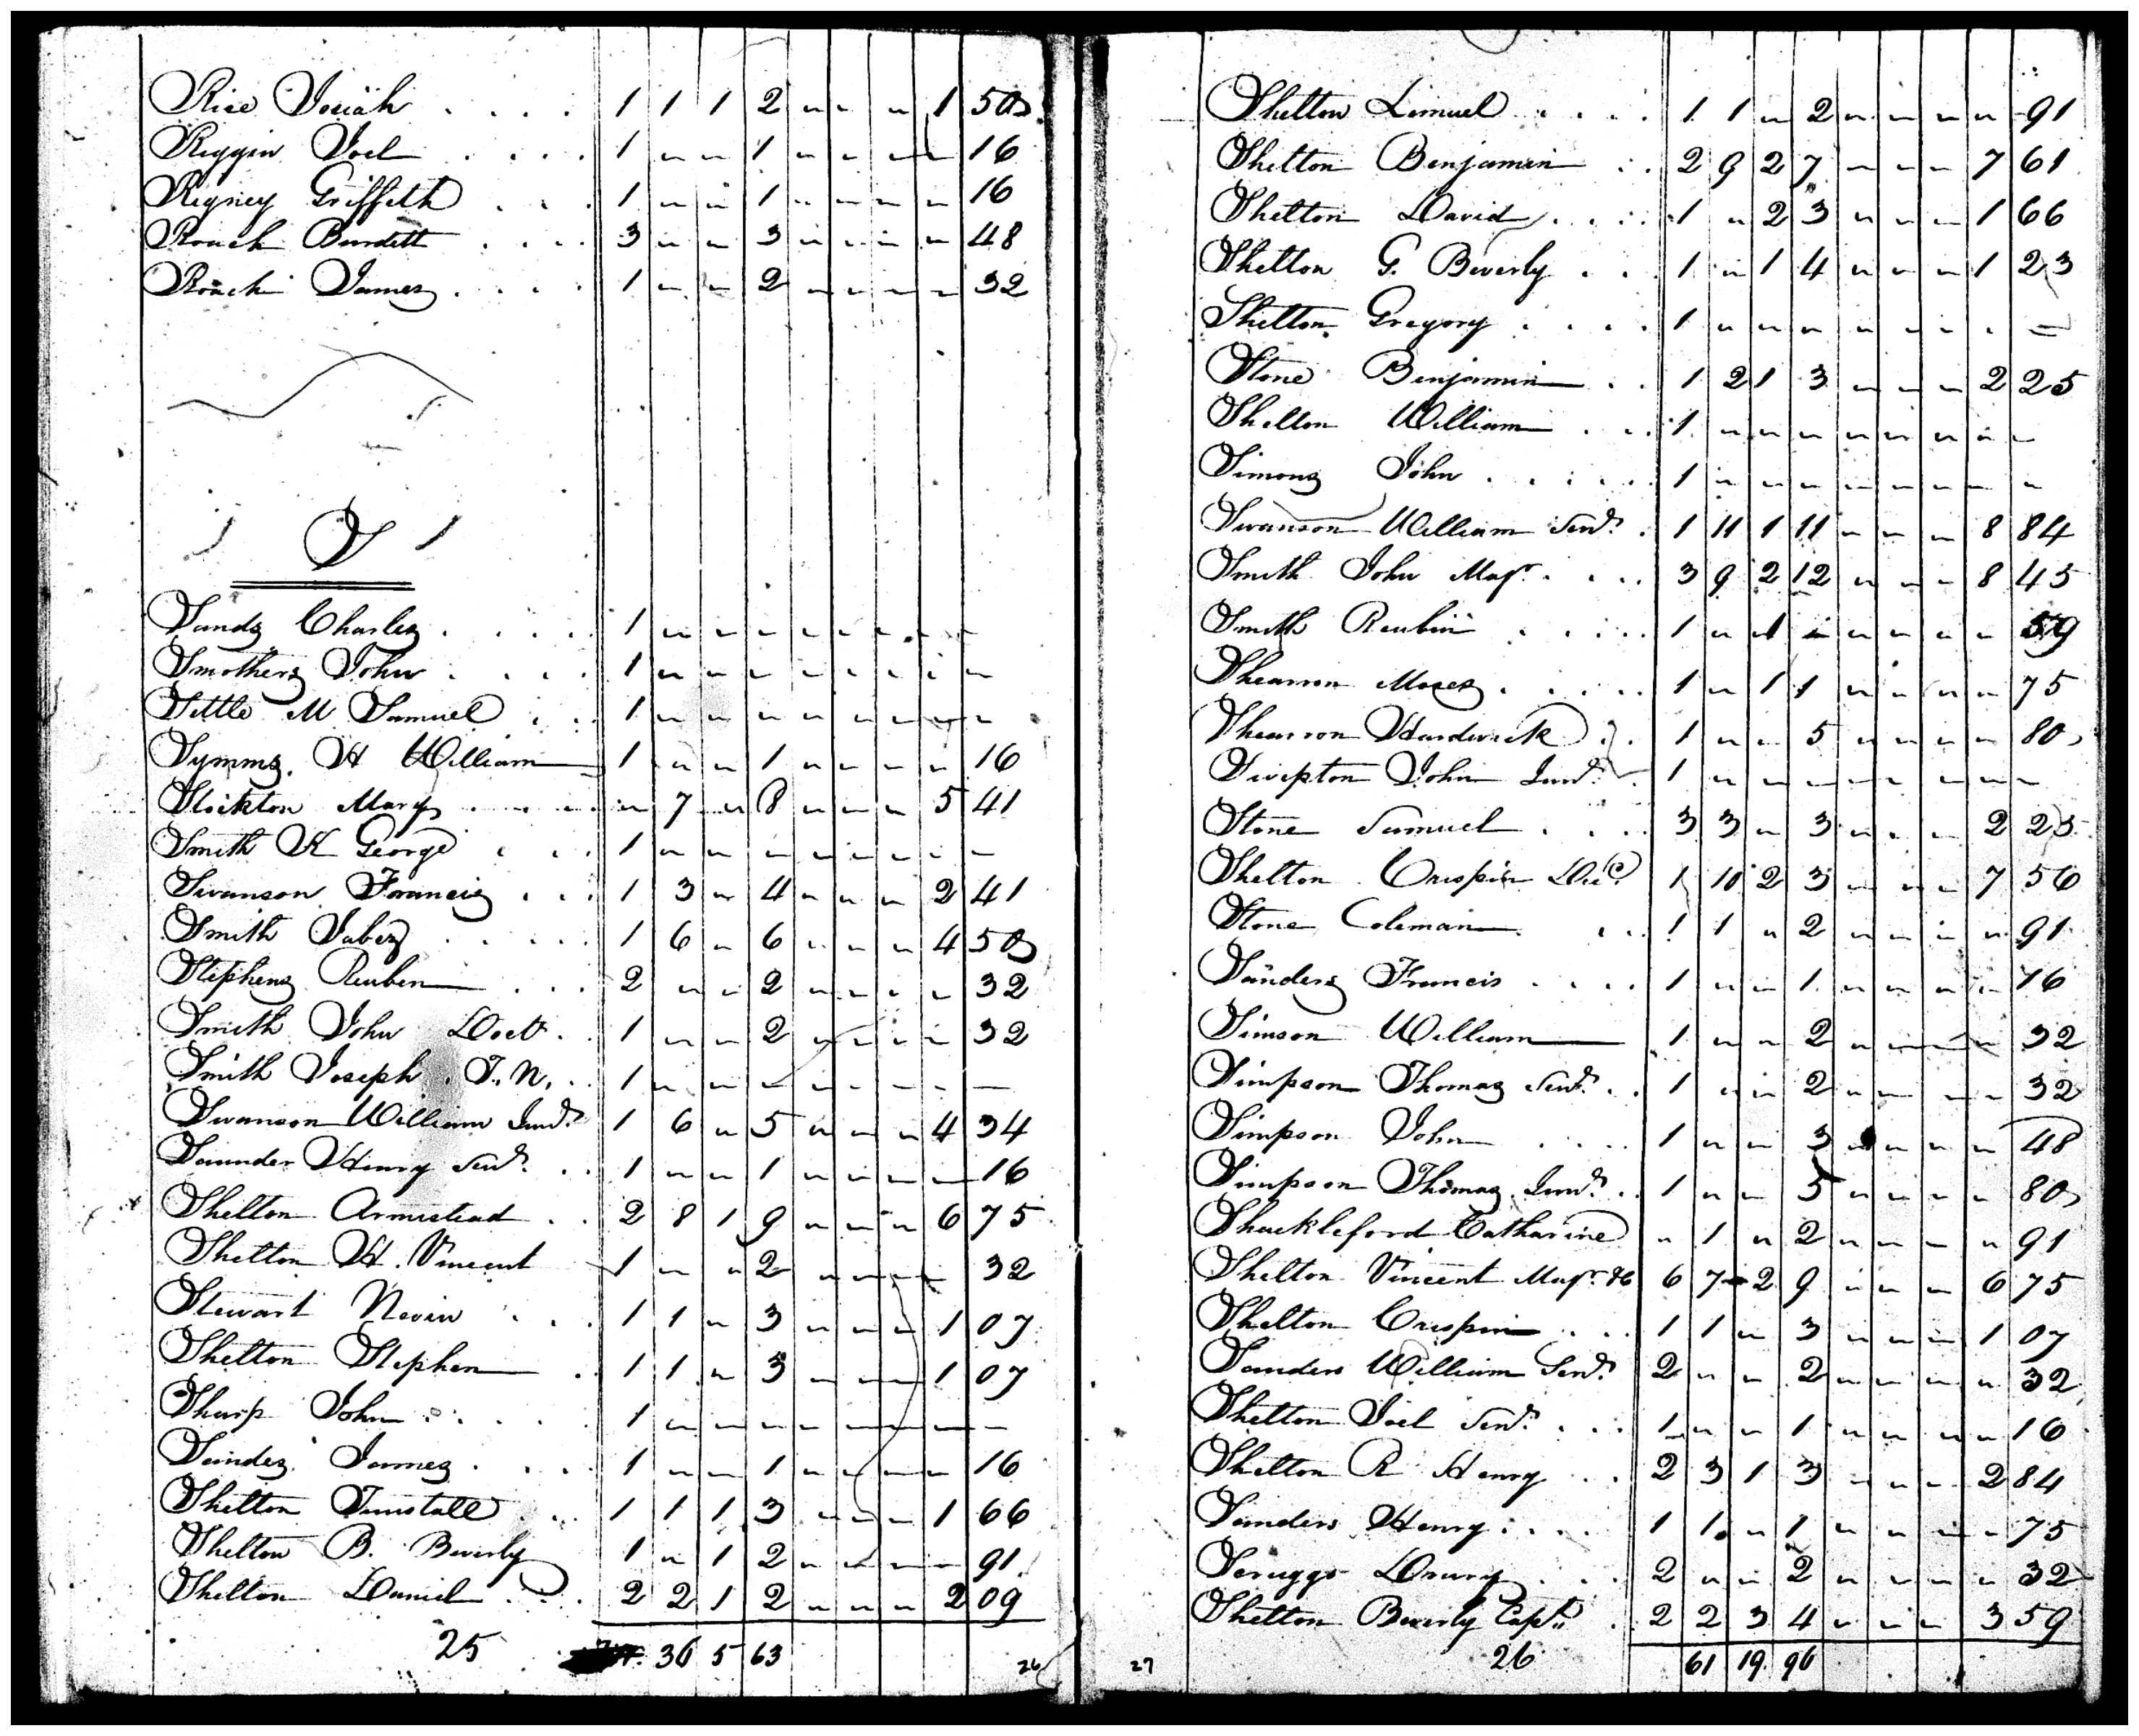 Rice Josiah . . . . 1 1 1 2 " " " 1 50
Riggin Joel . . . . 1 " " 1 " " " " 16
Rigney Griffeth . . . 1 " " 1 " " " " 16
Roach Burdett . . . 3 " " 3 " " " " 48
Roach James . . . . 1 " " 2 " " " " 32
S
Sands Charles . . . . 1 " " " " " " " "
Smothers John . . . . 1 " " " " " " " "
Settle M Samuel . . . 1 " " " " " " " "
Symms. H William 1 " " 1 " " " " 16
Stockton Mary . . . . " 7 " 8 " " " 5 41
Smith K George . . . 1 " " " " " " " "
Swanson Francis . . . 1 3 " 4 " " " 2 41
Smith Jabez . . . . . 1 6 " 6 " " " 4 50
Stephens Reuben . . . 2 " " 2 " " " " 32
Smith John Doct. . 1 " " 2 " " " " 32
Smith Joseph . T. N. . 1 " " " " " " " "
Swanson William Junr. 1 6 " 5 " " " 4 34
Saunder Henry Senr. . . 1 " " 1 " " " " 16
Shelton Armistead . . 2 8 1 9 " " " 6 75
Shelton H. Vincent 1 " " 2 " " " " 32
Stewart Nevin . . . 1 1 " 3 " " " 1 07
Shelton Stephen . 1 1 " 3 " " " 1 07
Sharp John . . . . . 1 " " " " " " " "
Sandes James . . . . 1 " " 1 " " " " 16
Shelton Tunstall . . 1 1 1 3 " " " 1 66
Shelton B. Beverly 1 " 1 2 " " " " 91
Shelton Daniel . . . 2 2 1 2 " " " 2 09
25 36 5 63
26
Shelton Lemuel . . . . 1 1 " 2 " " " " 91
Shelton Benjamin . . 2 9 2 7 " " " 7 61
Shelton David . . . . 1 " 2 3 " " " 1 66
Shelton G. Beverly . . . 1 " 1 4 " " " 1 23
Shelton Gregory . . . . 1 " " " " " " " "
Stone Benjamin . . 1 2 1 3 " " " 2 25
Shelton William . . . 1 " " " " " " " "
Simons John . . . . . 1 " " " " " " " "
Swanson William Senr. . 1 11 1 11 " " " 8 84
Smith John Majr. . . . 3 9 2 12 " " " 8 45
Smith Reubin . . . . 1 " 1 " " " " " 59
Shearson Moses . . . . . 1 " 1 1 " " " " 75
Shearson Hardwick . . 1 " " 5 " " " " 80
Swepton John Junr. 1 " " " " " " " "
Stone Samuel . . . . 3 3 " 3 " " " 2 25
Shelton Crispin 1 10 2 3 " " " 7 56
Stone Coleman . . . 1 1 " 2 " " " " 91
Sanders Francis . . . . 1 " " 1 " " " " 16
Simson William 1 " " 2 " " " " 32
Simpson Thomas Senr. . . 1 " " 2 " " " " 32
Simpson John . . . . 1 " " 3 " " " " 48
Simpson Thomas Junr. . 1 " " 5 " " " " 80
Shackleford Catharine " 1 " 2 " " " " 91
Shelton Vincent Majr. 6 7 2 9 " " " 6 75
Shelton Crispin . . . 1 1 " 3 " " " 1 07
Sanders William Senr. 2 " " 2 " " " " 32
Shelton Joel Senr. . . . 1 " " 1 " " " " 16
Shelton R Henry . . 2 3 1 3 " " " 2 84
Sanders Henry . . . . 1 1 " 1 " " " " 75
Scruggs Drury . . . 2 " " 2 " " " " 32
Shelton Beverly Capt. . 2 2 3 4 " " " 3 59
26 61 19 96
27